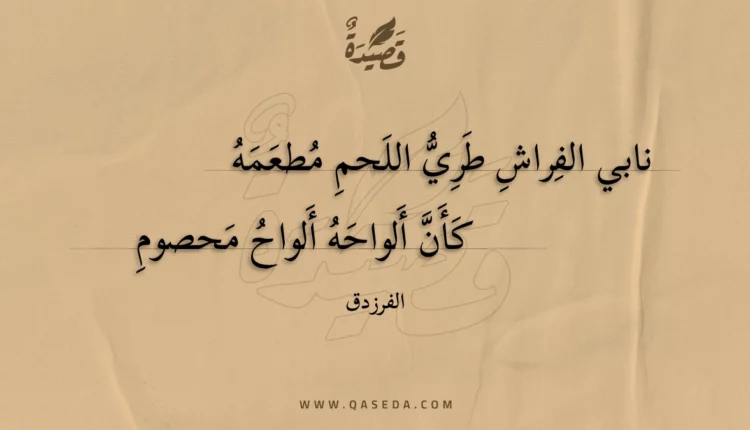 قَصِيدَةٌ
نابي الفِراشِ طَرِيُّ اللَحمِ مُطعَمَهُ
كَأَنَّ أَلواحَهُ أَلواحُ مَحصومِ
الفرزدق
WWW.QASEDA.COM